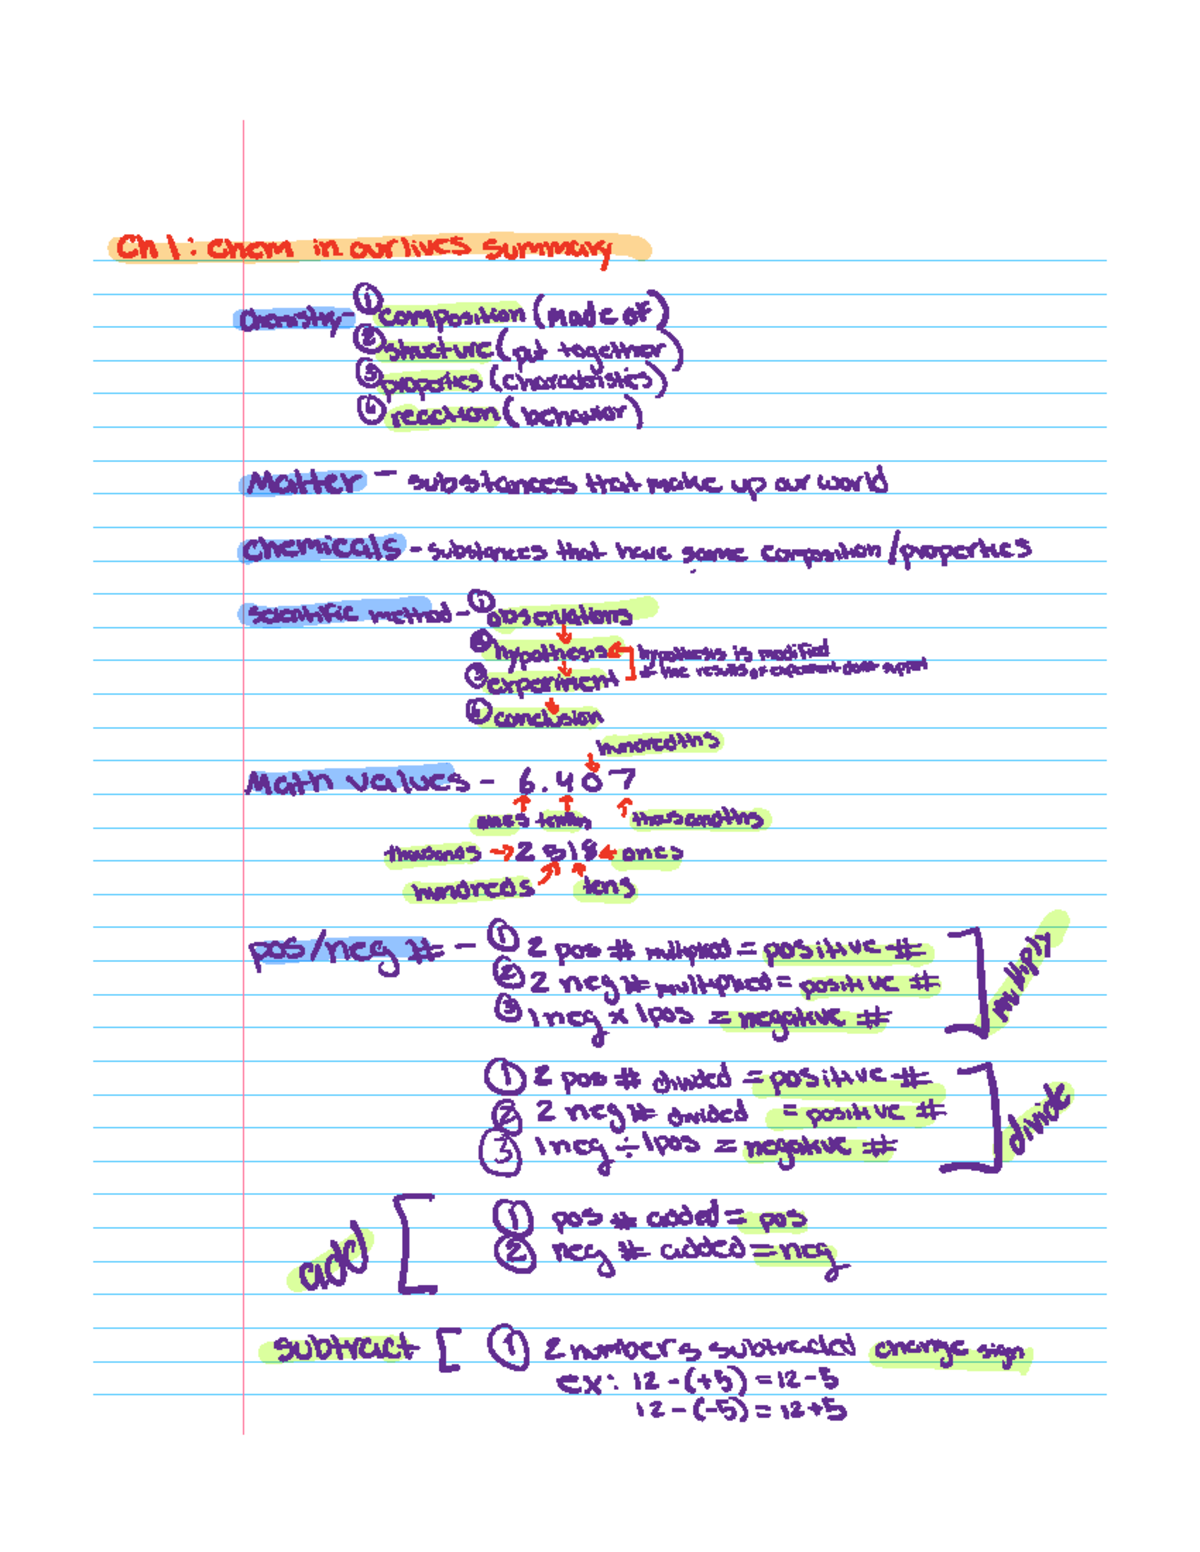 Ch 1: Chem in our lives summary
Chemistry- ① composition (made of)
② structure (put together)
③ properties (characteristics)
④ reaction (behavior)
Matter - substances that make up our world
Chemicals - substances that have same composition/properties
Scientific method - ① observations
② hypothesis hypothesis is modified
③ experiment if the results of experiment don't support
④ conclusion
hundredths
Math values - 6.407
ones tenths thousandths
thousands → 2518 ← ones
hundreds tens
pos/neg # - ① 2 pos # multiplied = positive #
② 2 neg # multiplied = positive #
③ 1 neg x 1 pos = negative #
multiply
① 2 pos # divided = positive #
② 2 neg # divided = positive #
③ 1 neg ÷ 1 pos = negative #
divide
add [ ① pos # added = pos
② neg # added = neg
subtract [ ① 2 numbers subtracted change sign
ex: 12 - (+5) = 12 - 5
12 - (-5) = 12 + 5